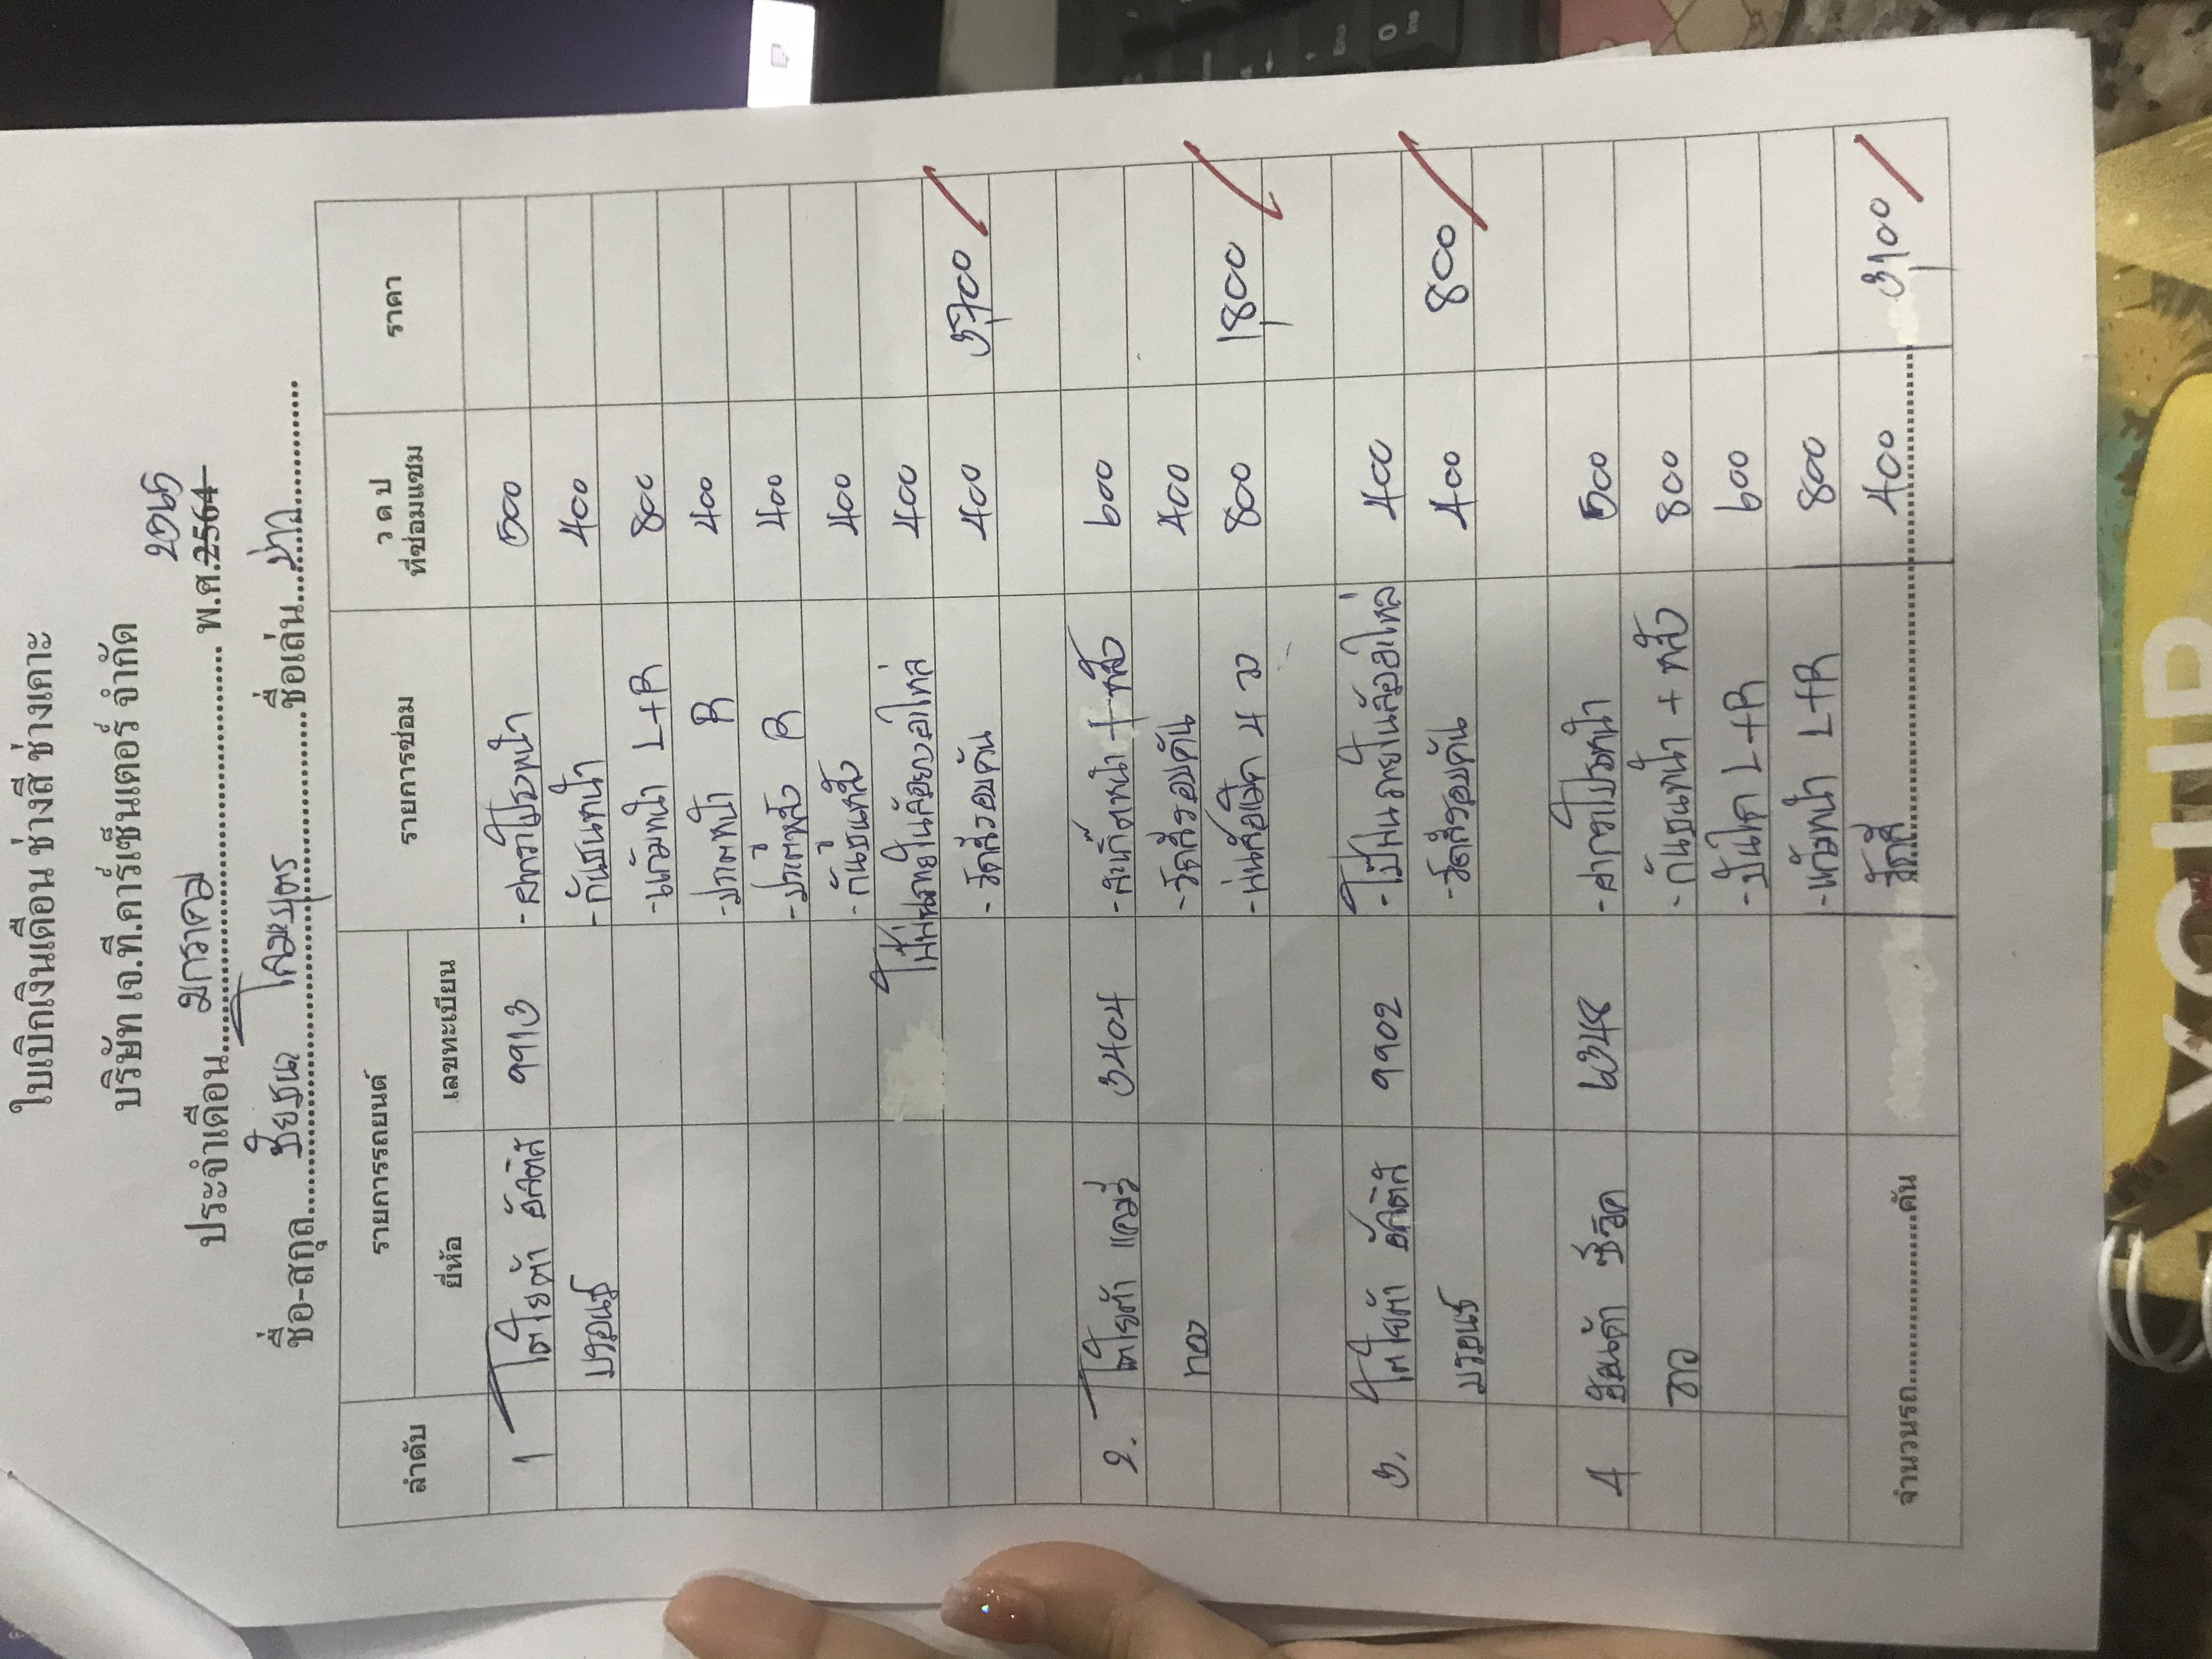 ใบเบิกเงินเดือน ช่างสี ช่างเคาะ
บริษัท เจ.ที.คาร์เซ็นเตอร์ จำกัด
ประจำเดือน มกราคม พ.ศ. 2564
ชื่อ-สกุล ชัยชนะ ชื่อเล่น
ลำดับ รายการรถยนต์ รายการซ่อม ว ด ป ที่ซ่อมแซม ราคา
ยี่ห้อ เลขทะเบียน
1 โตโยต้า อัลติส 9913 - ฝากระโปรงหน้า 500
บรอนซ์ - กันชนหน้า 400
- แก้มหน้า L+R 800
- ประตูหน้า R 400
- ประตูหลัง R 400
- กันชนหลัง 400
400
- ขัดสีรอบคัน 400 3700
2. โตโยต้า แคมรี่ 3404 - สเกิ๊ตหน้า + หลัง 600
ทอง - ขัดสีรอบคัน 400
- พ่นล้อแม็ค 4 วง 800 1800
3. โตโยต้า อัลติส 9902 400
บรอนซ์ - ขัดสีรอบคัน 400 800
4 ฮอนด้า ซีวิค 6348 - ฝากระโปรงหน้า 500
ขาว - กันชนหน้า + หลัง 800
- บันได L+R 600
- แก้มหน้า L+R 800
จำนวนรถ..........คัน ขัดสี 400 3100
YCLIP